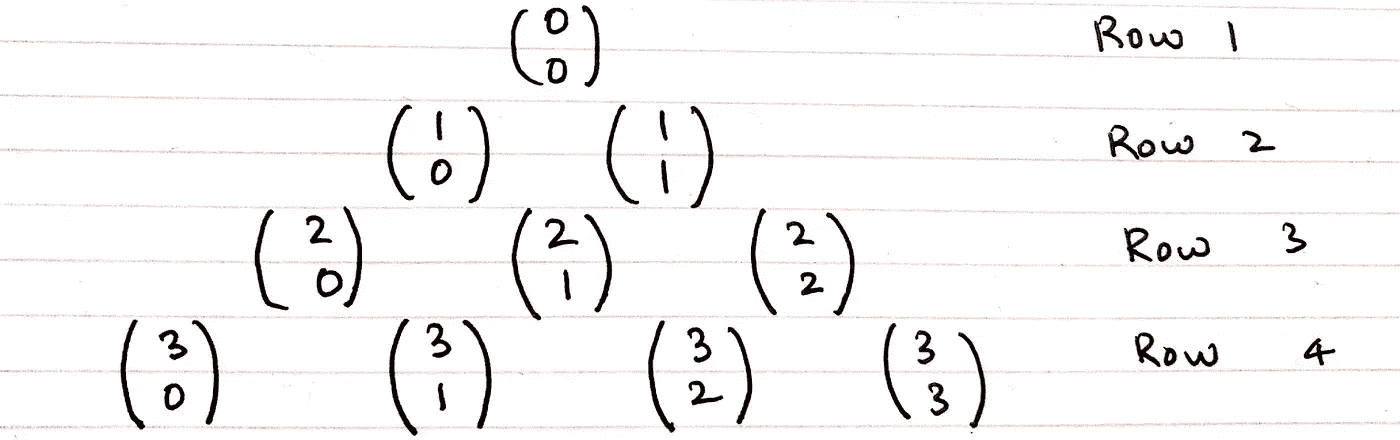 (0 0) Row 1
(1 0) (1 1) Row 2
(2 0) (2 1) (2 2) Row 3
(3 0) (3 1) (3 2) (3 3) Row 4